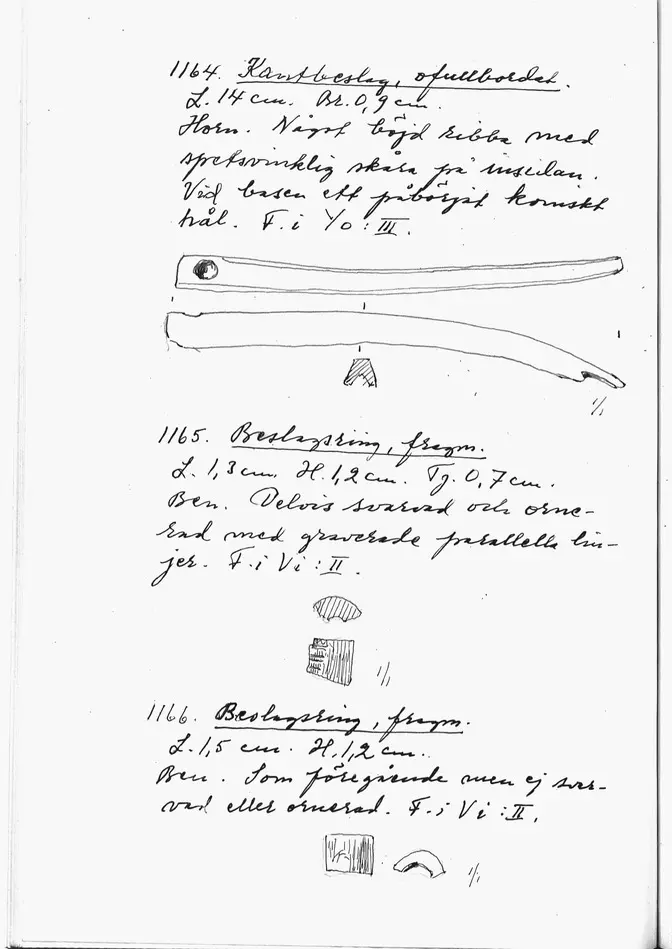 1164. Kantbeslag, ofullbordat.
L. 14 cm. Br. 0,9 cm.
Horn. Något böjd ribba med
spetsvinklig skåra på insidan.
Vid basen ett påbörjat koniskt
hål. F. i Yo : III.
1/1
1165. Beslagsring, fragm.
L. 1,3 cm. H. 1,2 cm. Tj. 0,7 cm.
Ben. Delvis svarvad och orne-
rad med graverade parallella lin-
jer. F. i Vi : II.
1/1
1166. Beslagsring, fragm.
L. 1,5 cm. H. 1,2 cm.
Ben. Som föregående men ej svar-
vad eller ornerad. F. i Vi : II.
1/1